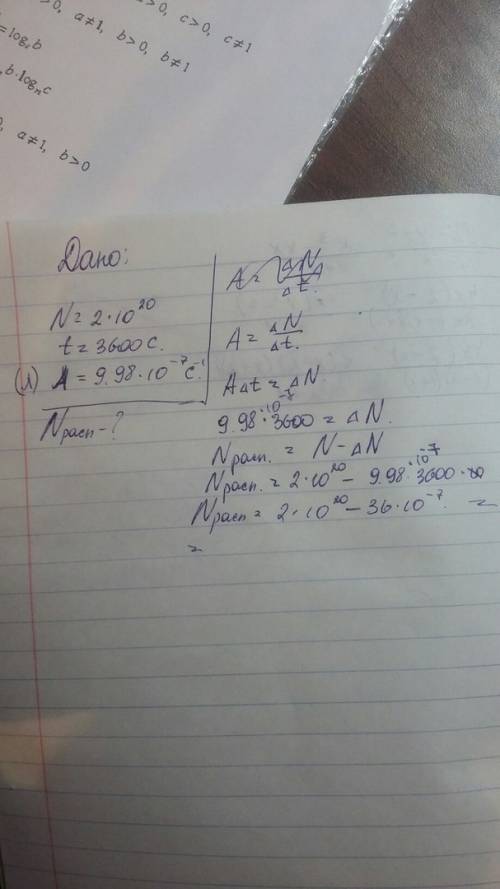 >0, a≠1, b>0, b≠1
>0, c>0, c≠1
=logₐb
b·logₙc
a≠1, b>0
Дано:
N = 2·10²⁰
t = 3600 с.
(λ) A = 9.98·10⁻⁷ с⁻¹
Nрасп - ?
A = ΔN
Δt.
A = ΔN
Δt.
AΔt = ΔN.
9.98·10⁻⁷·3600 = ΔN.
Nрасп. = N - ΔN
Nрасп. = 2·10²⁰ - 9.98·10⁻⁷·3600·
Nрасп = 2·10²⁰ - 36·10⁻⁷. =
=